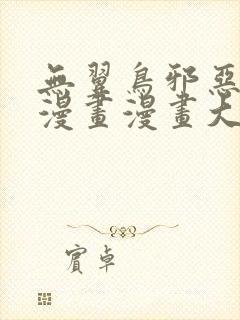 無翼鳥邪惡
漫畫漫畫大
賓卓